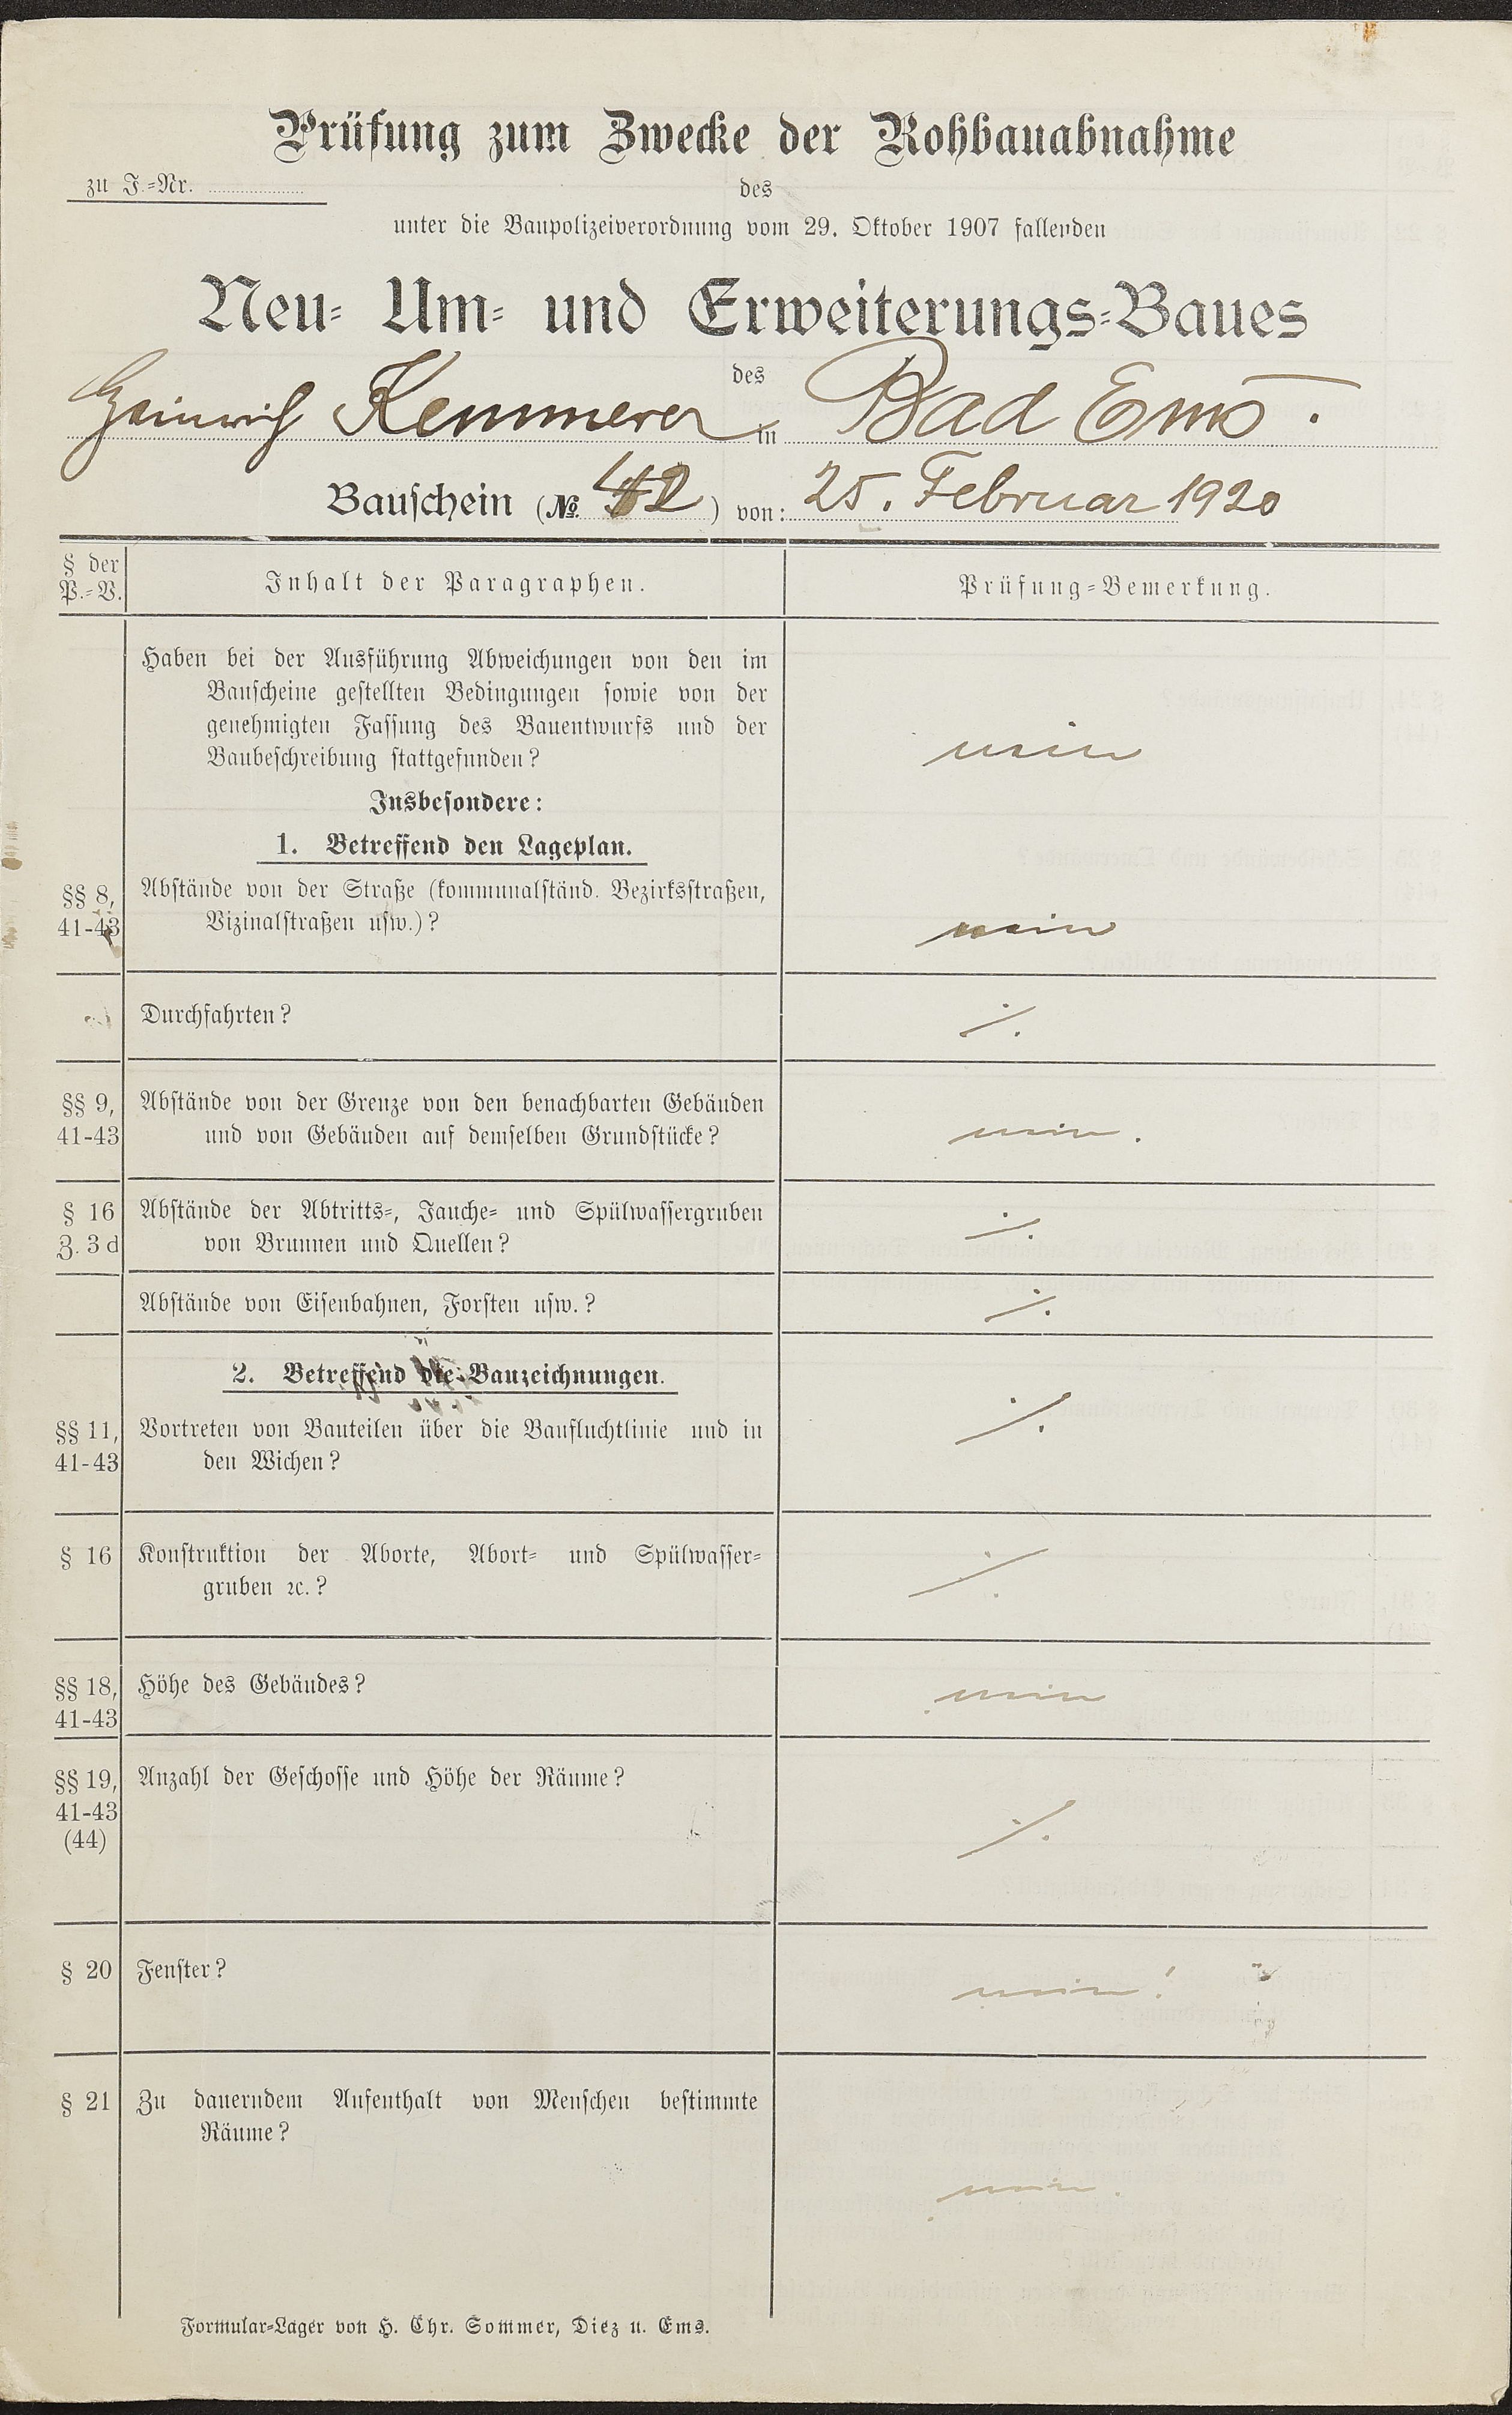 Prüfung zum Zwecke der Rohbauabnahme
zu J.-Nr.
des
unter die Baupolizeiverordnung vom 29. Oktober 1907 fallenden
Neu- Um- und Erweiterungs-Baues
des
Heinrich Kemmerer in Bad Ems.
Bauschein (No. 42) von: 25. Februar 1920
§ der
P.-V.
Inhalt der Paragraphen.
Prüfung-Bemerkung.
Haben bei der Ausführung Abweichungen von den im
Bauscheine gestellten Bedingungen sowie von der
genehmigten Fassung des Bauentwurfs und der
Baubeschreibung stattgefunden?
nein
Insbesondere:
1. Betreffend den Lageplan.
§§ 8,
41-43
Abstände von der Straße (kommunalständ. Bezirksstraßen,
Vizinalstraßen usw.)?
nein
Durchfahrten?
·/.
§§ 9,
41-43
Abstände von der Grenze von den benachbarten Gebäuden
und von Gebäuden auf demselben Grundstücke?
nein.
§ 16
Z. 3 d
Abstände der Abtritts-, Jauche- und Spülwassergruben
von Brunnen und Quellen?
·/.
Abstände von Eisenbahnen, Forsten usw.?
·/.
2. Betreffend die Bauzeichnungen.
§§ 11,
41-43
Vortreten von Bauteilen über die Baufluchtlinie und in
den Wichen?
·/.
§ 16
Konstruktion der Aborte, Abort- und Spülwasser-
gruben ꝛc.?
·/.
§§ 18,
41-43
Höhe des Gebäudes?
nein
§§ 19,
41-43
(44)
Anzahl der Geschosse und Höhe der Räume?
·/.
§ 20
Fenster?
nein!
§ 21
Zu dauerndem Aufenthalt von Menschen bestimmte
Räume?
nein.
Formular-Lager von H. Chr. Sommer, Diez u. Ems.